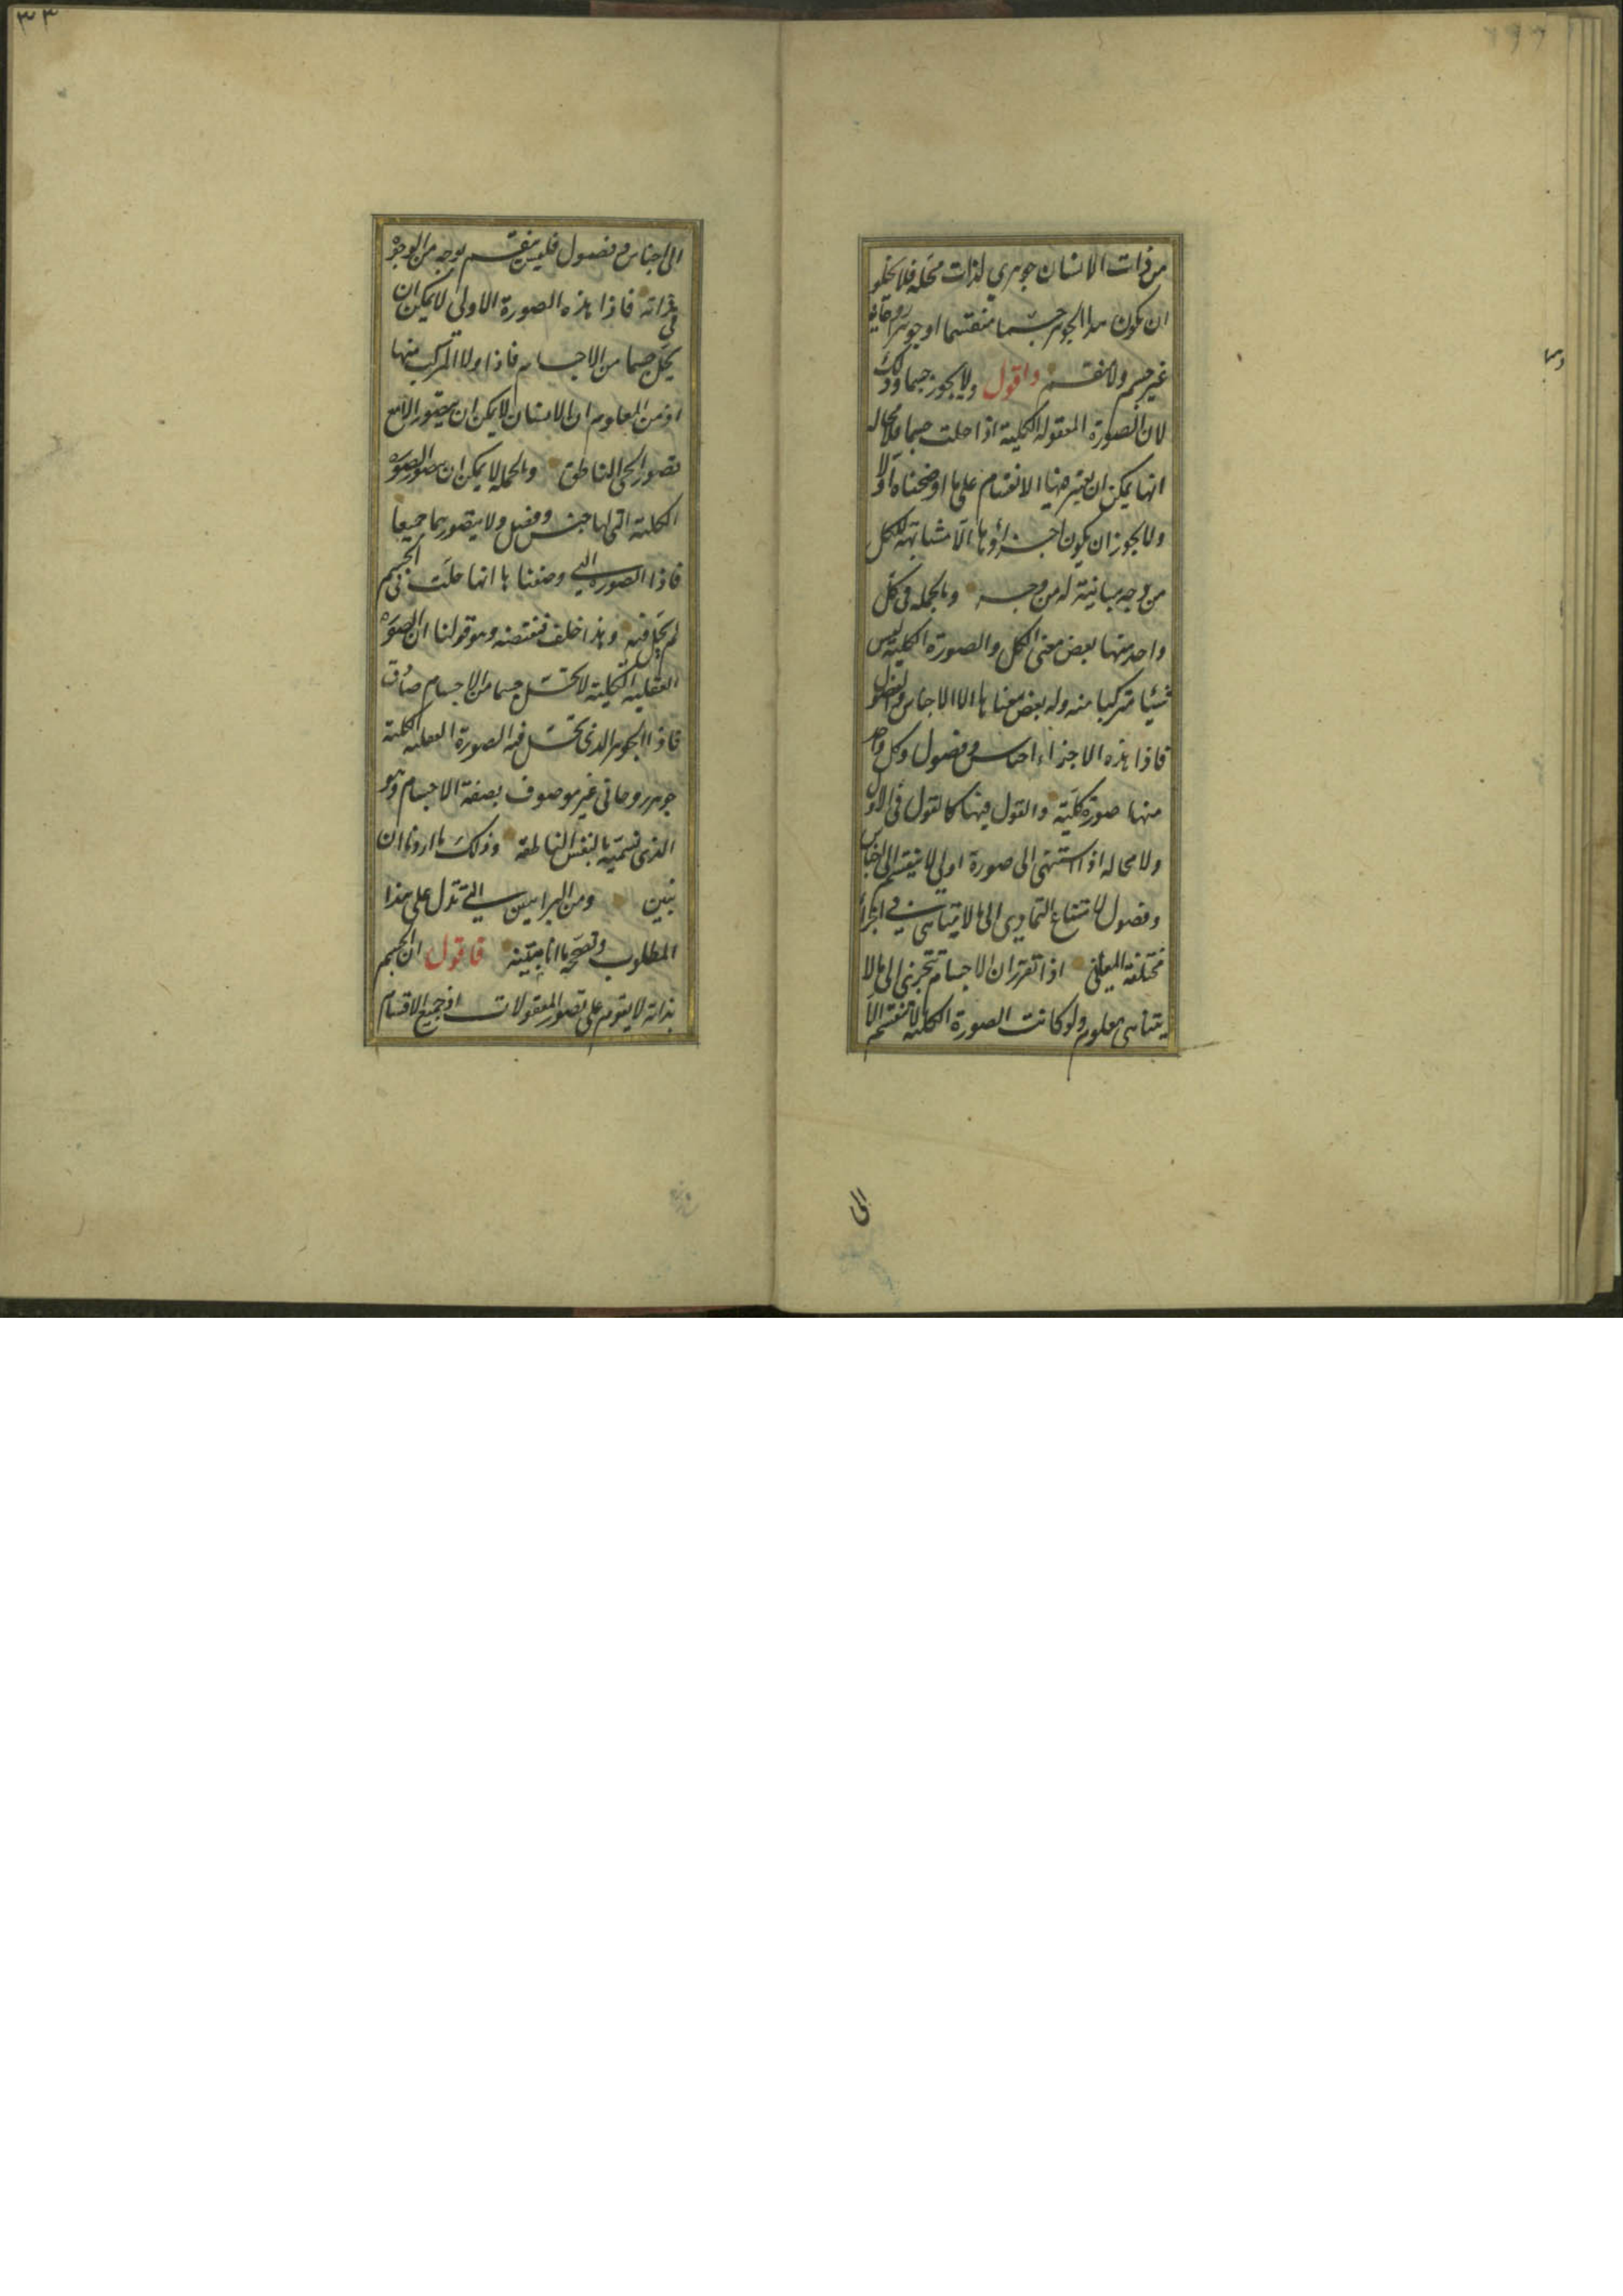 من ذات الانسان جوهري لذات محله فلا يخلو
ان يكون هذا الجوهر جسما منقسما او جوهرا روحانيا
غير جسم ولا منقسم واقول ولا يجوز جسما وذلك
لان الصورة المعقولة الكلية اذا حلت جسما فلا محاله
انها يمكن ان يعتبر فيها الانقسام على ما اوضحناه اولا
ولا يجوز ان يكون اجزاؤها الا مشابهة للكل
من وجه مباينة له من وجه وبالجمله في كل
واحد منها بعض معنى الكل والصورة الكلية ليس
شيئا متركبا منه وله بعض معناها الا الاجناس والفصول
فاذا هذه الاجزاء اجناس وفصول وكل واحد
منها صورة كلية والقول فيها كالقول في الاول
ولا محاله اذا استنهى الى صورة اولى لا ينقسم الى اجناس
وفصول لامتناع التمادى الى ما لا يتناهى في اجزاء
مختلفة المعانى اذا تقرر ان الاجسام تتجزى الى ما لا
يتناهى معلوم ولو كانت الصورة الكلية لا تنقسم الا
الى
الى اجناس وفصول فليس ينقسم بوجه من الوجوه
في ذاته فاذا هذه الصورة الاولى لا يمكن ان
يحل جسما من الاجسام فاذا ولا المركب منها
اذ من المعلوم ان الانسان لا يمكن ان يتصور الا مع
تصور الحى الناطق وبالجمله لا يمكن ان يتصور الصورة
الكلية التى لها جنس وفصل ولا يتصور بهما جميعا
فاذا الصورة التي وضعناها انها حلت في الجسم
لم يحل فيه وهذا خلف فنقيضه وهو قولنا ان الصورة
العقلية الكلية لا تحتل جسما من الاجسام صادق
فاذا الجوهر الذى تحتل فيه الصورة العقلية الكلية
جوهر روحانى غير موصوف بصفة الاجسام وهو
الذى نسميه بالنفس الناطقة وذلك ما اردنا ان
نبين ومن البراهين التي تدل على هذا
المطلوب وتصححه ما انا مبينه فاقول ان الجسم
بذاته لا يقوم على تصور المعقولات اذ جميع الاقسام
٣٣